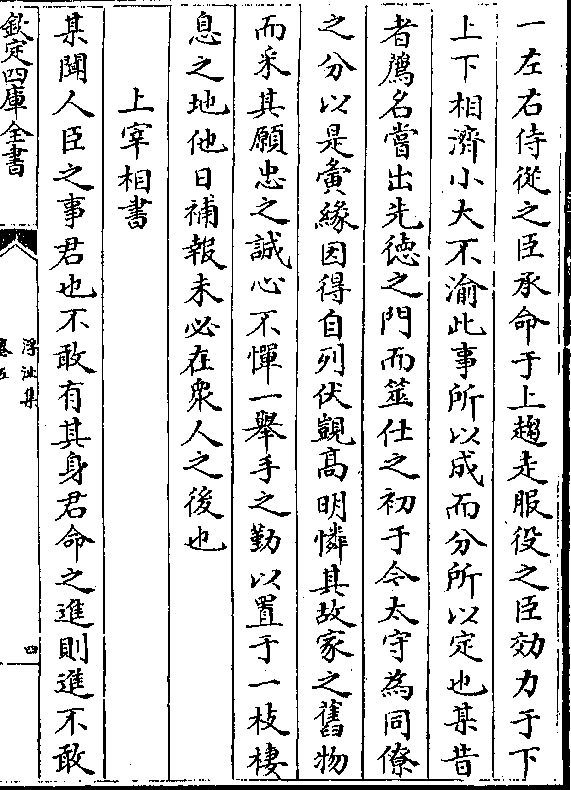 一左右侍從之臣承命于上趨走服役之臣効力于下
上下相濟小大不渝此事所以成而分所以定也某昔
者薦名嘗出先徳之門而筮仕之初于令太守為同僚
之分以是夤緣因得自列伏覬髙明憐其故家之舊物
而采其願忠之誠心不憚一舉手之勤以置于一枝棲
息之地他日補報未必在衆人之後也
上宰相書
某聞人臣之事君也不敢有其身君命之進則進不敢
欽定四庫全書
浮沚集
卷五
四